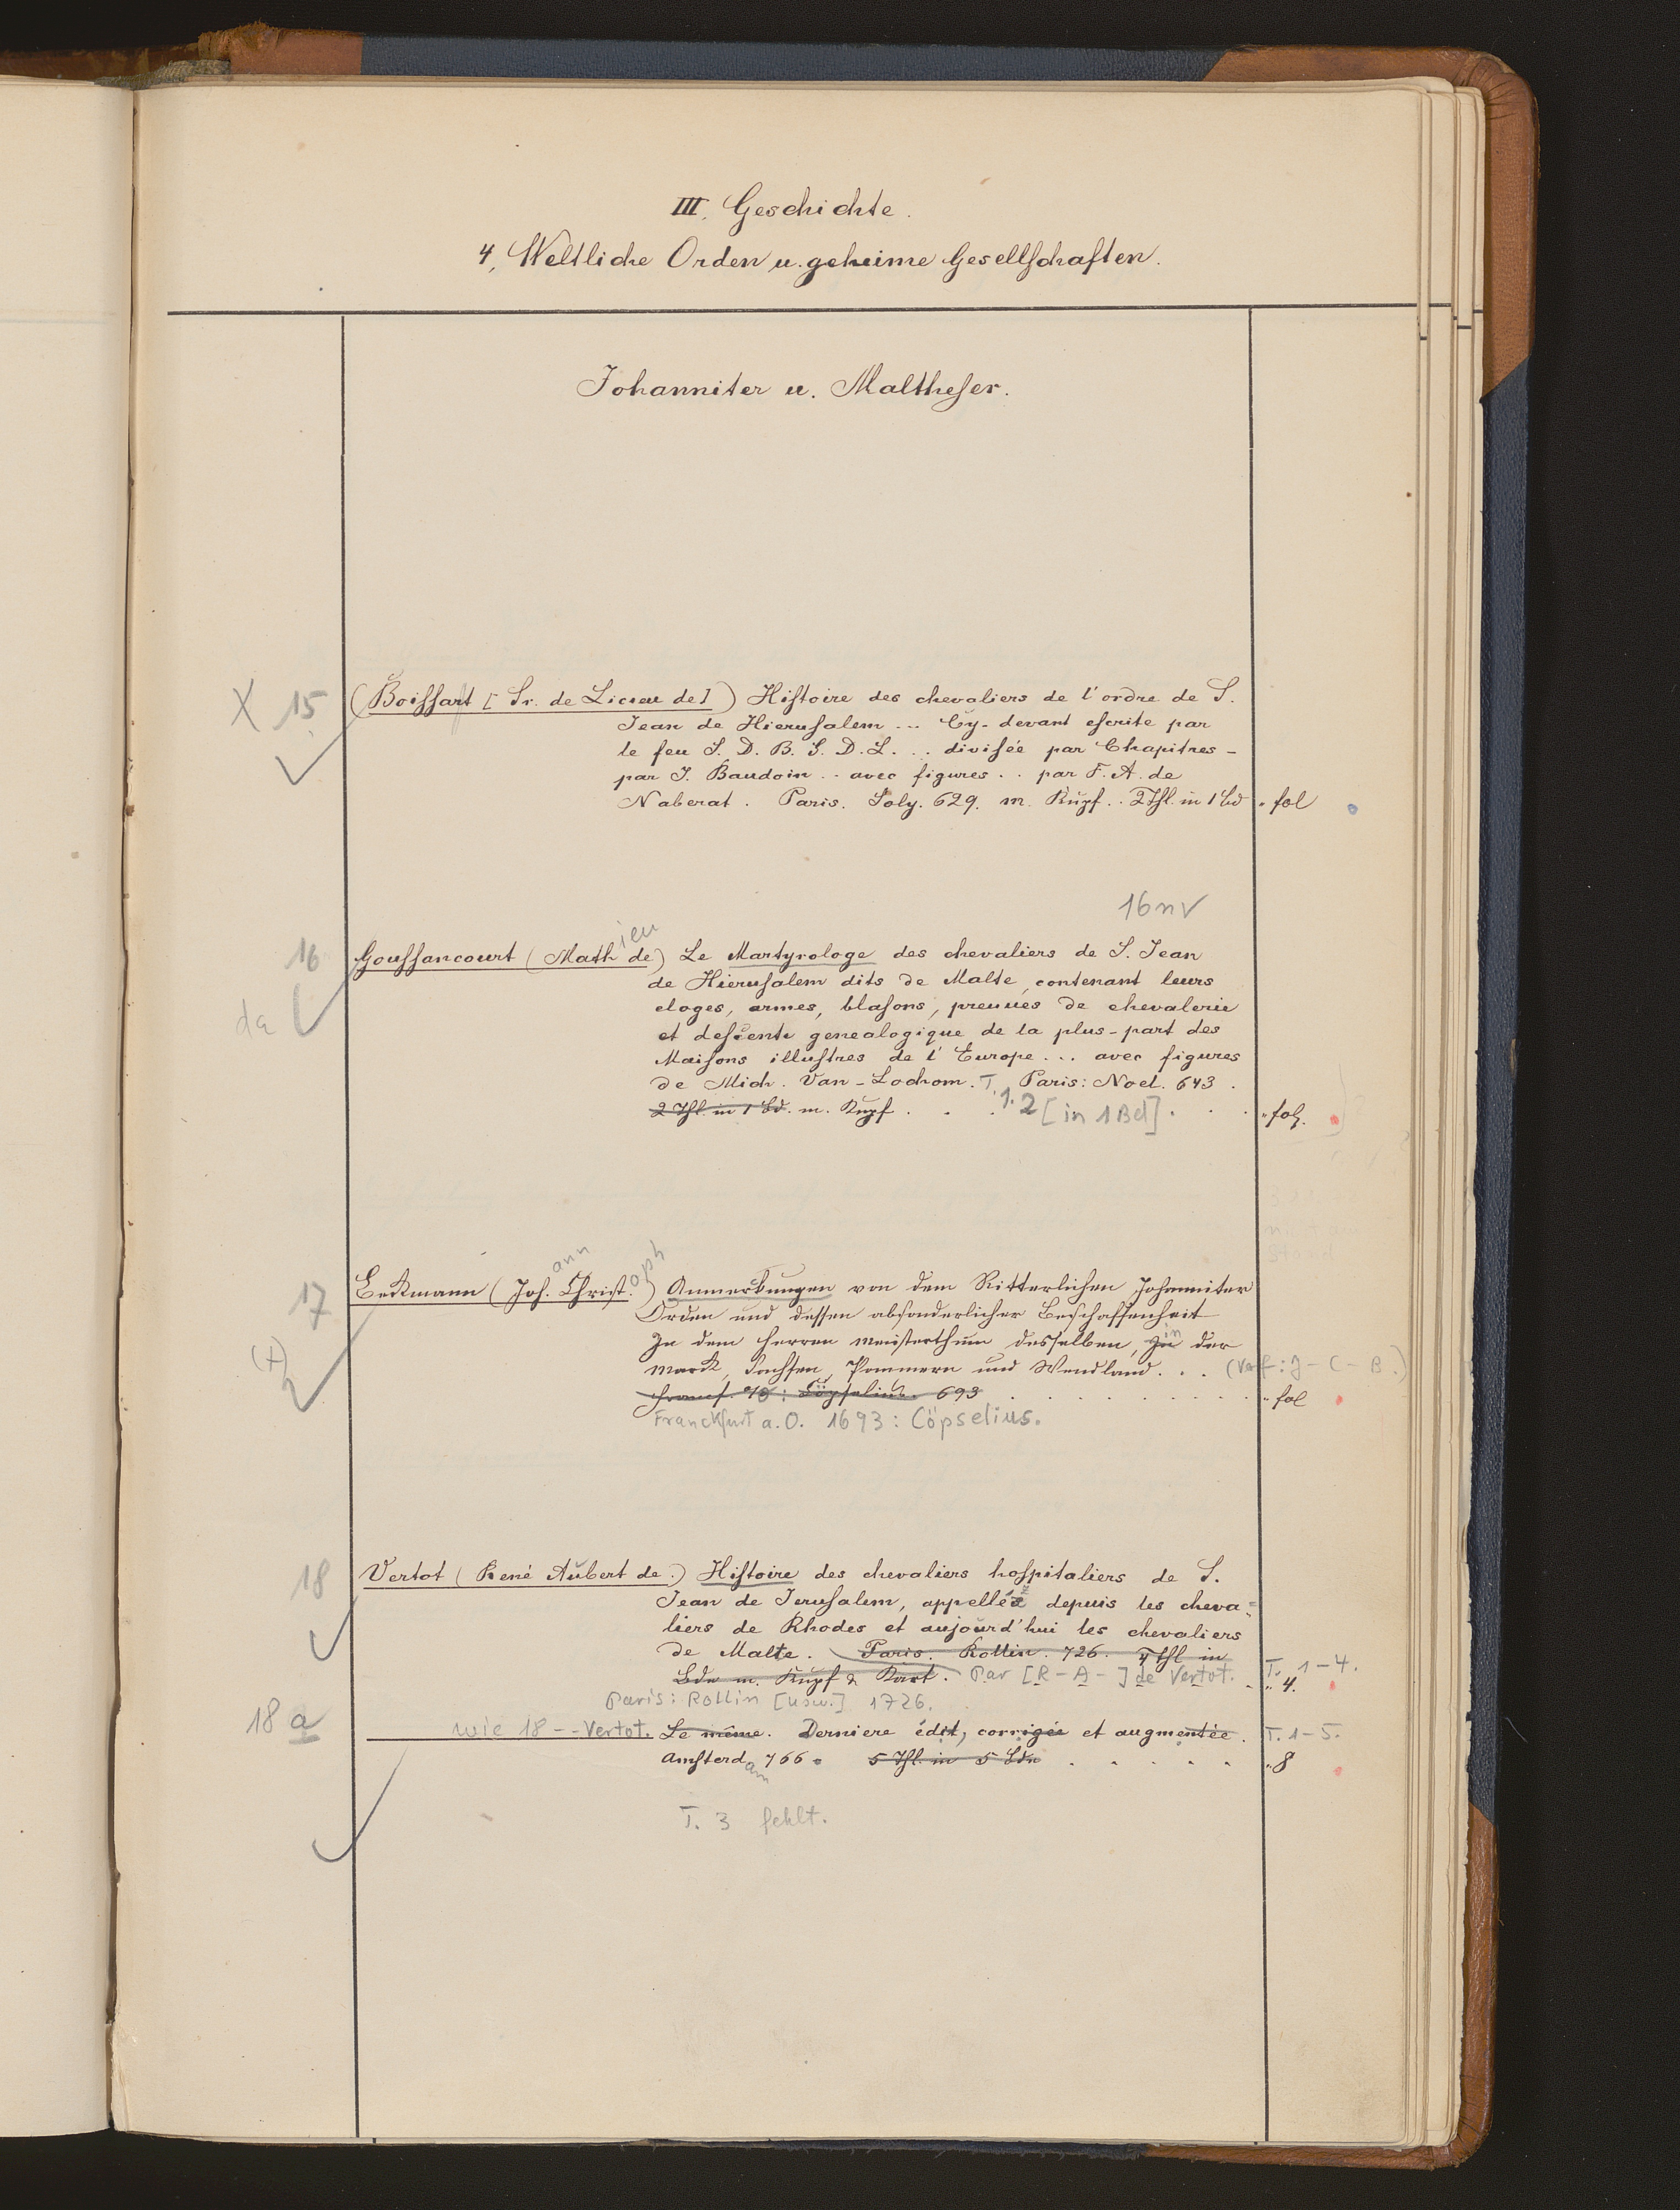 III. Geschichte.
4, Weltliche Orden u. geheime Gesellschaften.
Johanniter u. Maltheser.
X 15 (Boissart [Sr. de Licieu de]) Histoire des chevaliers de l'ordre de S.
Jean de Hierusalem ... Cy-devant escrite par
le feu S. D. B. S. D. L. ... divisée par Chapitres -
par J. Baudoin .. avec figures .. par F. A. de
Naberat. Paris. Soly. 629. m. Kupf. . 2 Thl. in 1 Bd " fol
16 n V
16 Goussancourt (Mathieu de) Le Martyrologe des chevaliers de S. Jean
da de Hierusalem dits de Malte, contenant leurs
eloges, armes, blasons, preuues de chevalerie
et descente genealogique de la plus-part des
Maisons illustres de l'Europe ... avec figures
de Mich. Van-Lochom. T. Paris: Noel. 643.
2 Thl. in 1 Bd. m. Kupf . . . 1. 2 [in 1 Bd] . . . " fol.
17 Beckmann (Johann Christoph) Anmerkungen von dem Ritterlichen Johanniter
Orden und dessen absonderlicher Beschaffenheit
In dem Herren meisterthum desselben, in der
(+) Marck, Sachsen, Pommern und Wendland. . . (Verf: J - C - B.)
693 . . . " fol
Franckfurt a. O. 1693: Cöpselius.
18 Vertot (René Aubert de.) Histoire des chevaliers hospitaliers de S.
Jean de Jerusalem, appelléz depuis les cheva=
liers de Rhodes et aujourd'hui les chevaliers
de Malte. Paris. Rollin. 726. 4 Thl in
Bdn m. Kupf & Kart. Par [R - A - ] de Vertot. T. 1-4. " 4.
Paris: Rollin [usw.] 1726.
18 a wie 18 -- Vertot. Le même. Derniere édit, corrigée et augmentée. T. 1-5.
Amsterdam 766. 5 Thl. in 5 Bdn . . . . . " 8
T. 3 fehlt.